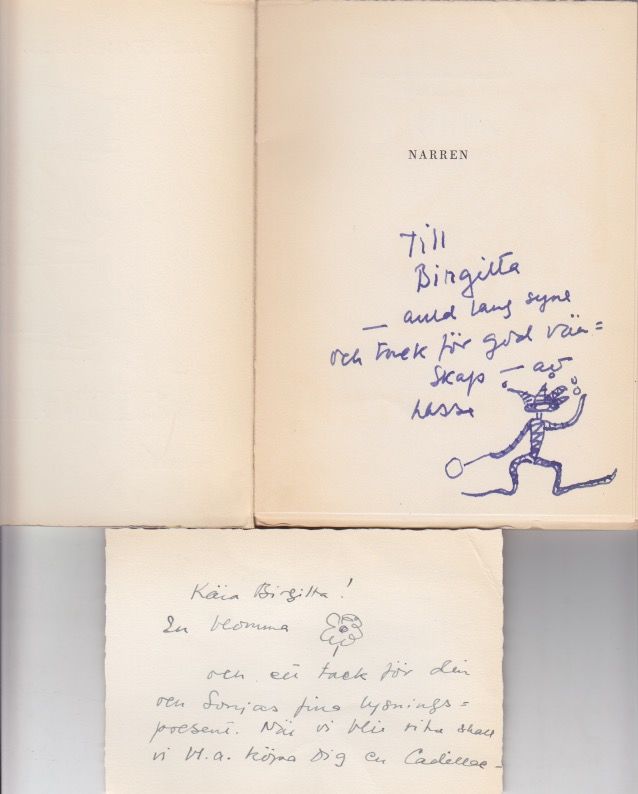 NARREN
Till
Birgitta
— auld lang syne
och tack för god vän=
skap — av
Lasse
Kära Birgitta!
En blomma
och ett tack för din
och Sonjas fina lysnings=
present. När vi blir rika skall
vi bl.a. köpa Dig en Cadillac –